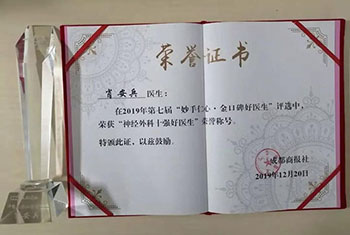 荣誉证书
肖安兵 医生:
在2019年第七届“妙手仁心·金口碑好医生”评选中,
荣获“神经外科十强好医生”荣誉称号。
特颁此证,以兹鼓励。
成都商报社
2019年12月20日